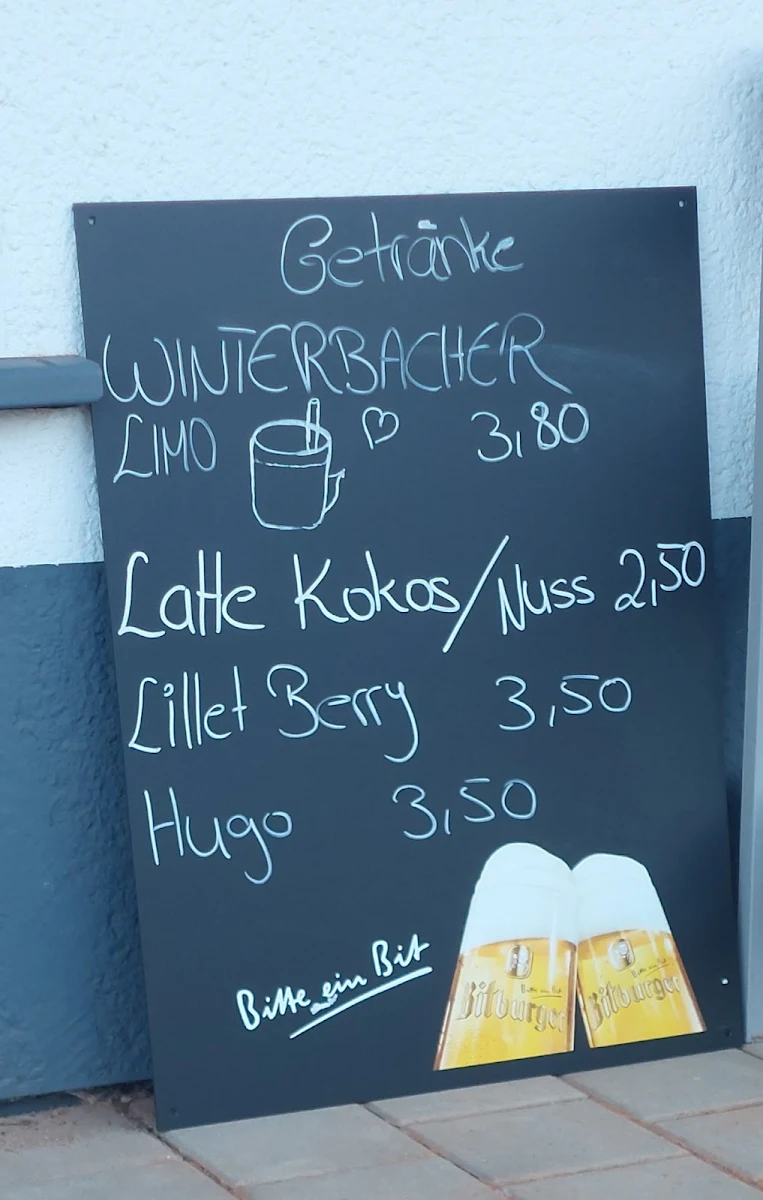 Getränke
WINTERBACHER
LIMO 3,80
Latte Kokos/Nuss 2,50
Lillet Berry 3,50
Hugo 3,50
Bitte ein Bit
Bitte ein Bit
Bitburger
Bitte ein Bit
Bitburger